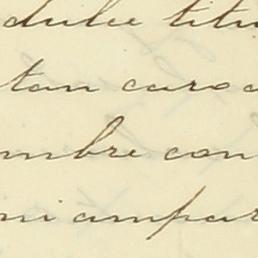 dulce titu
tan caro a
mbre con
mi ampar